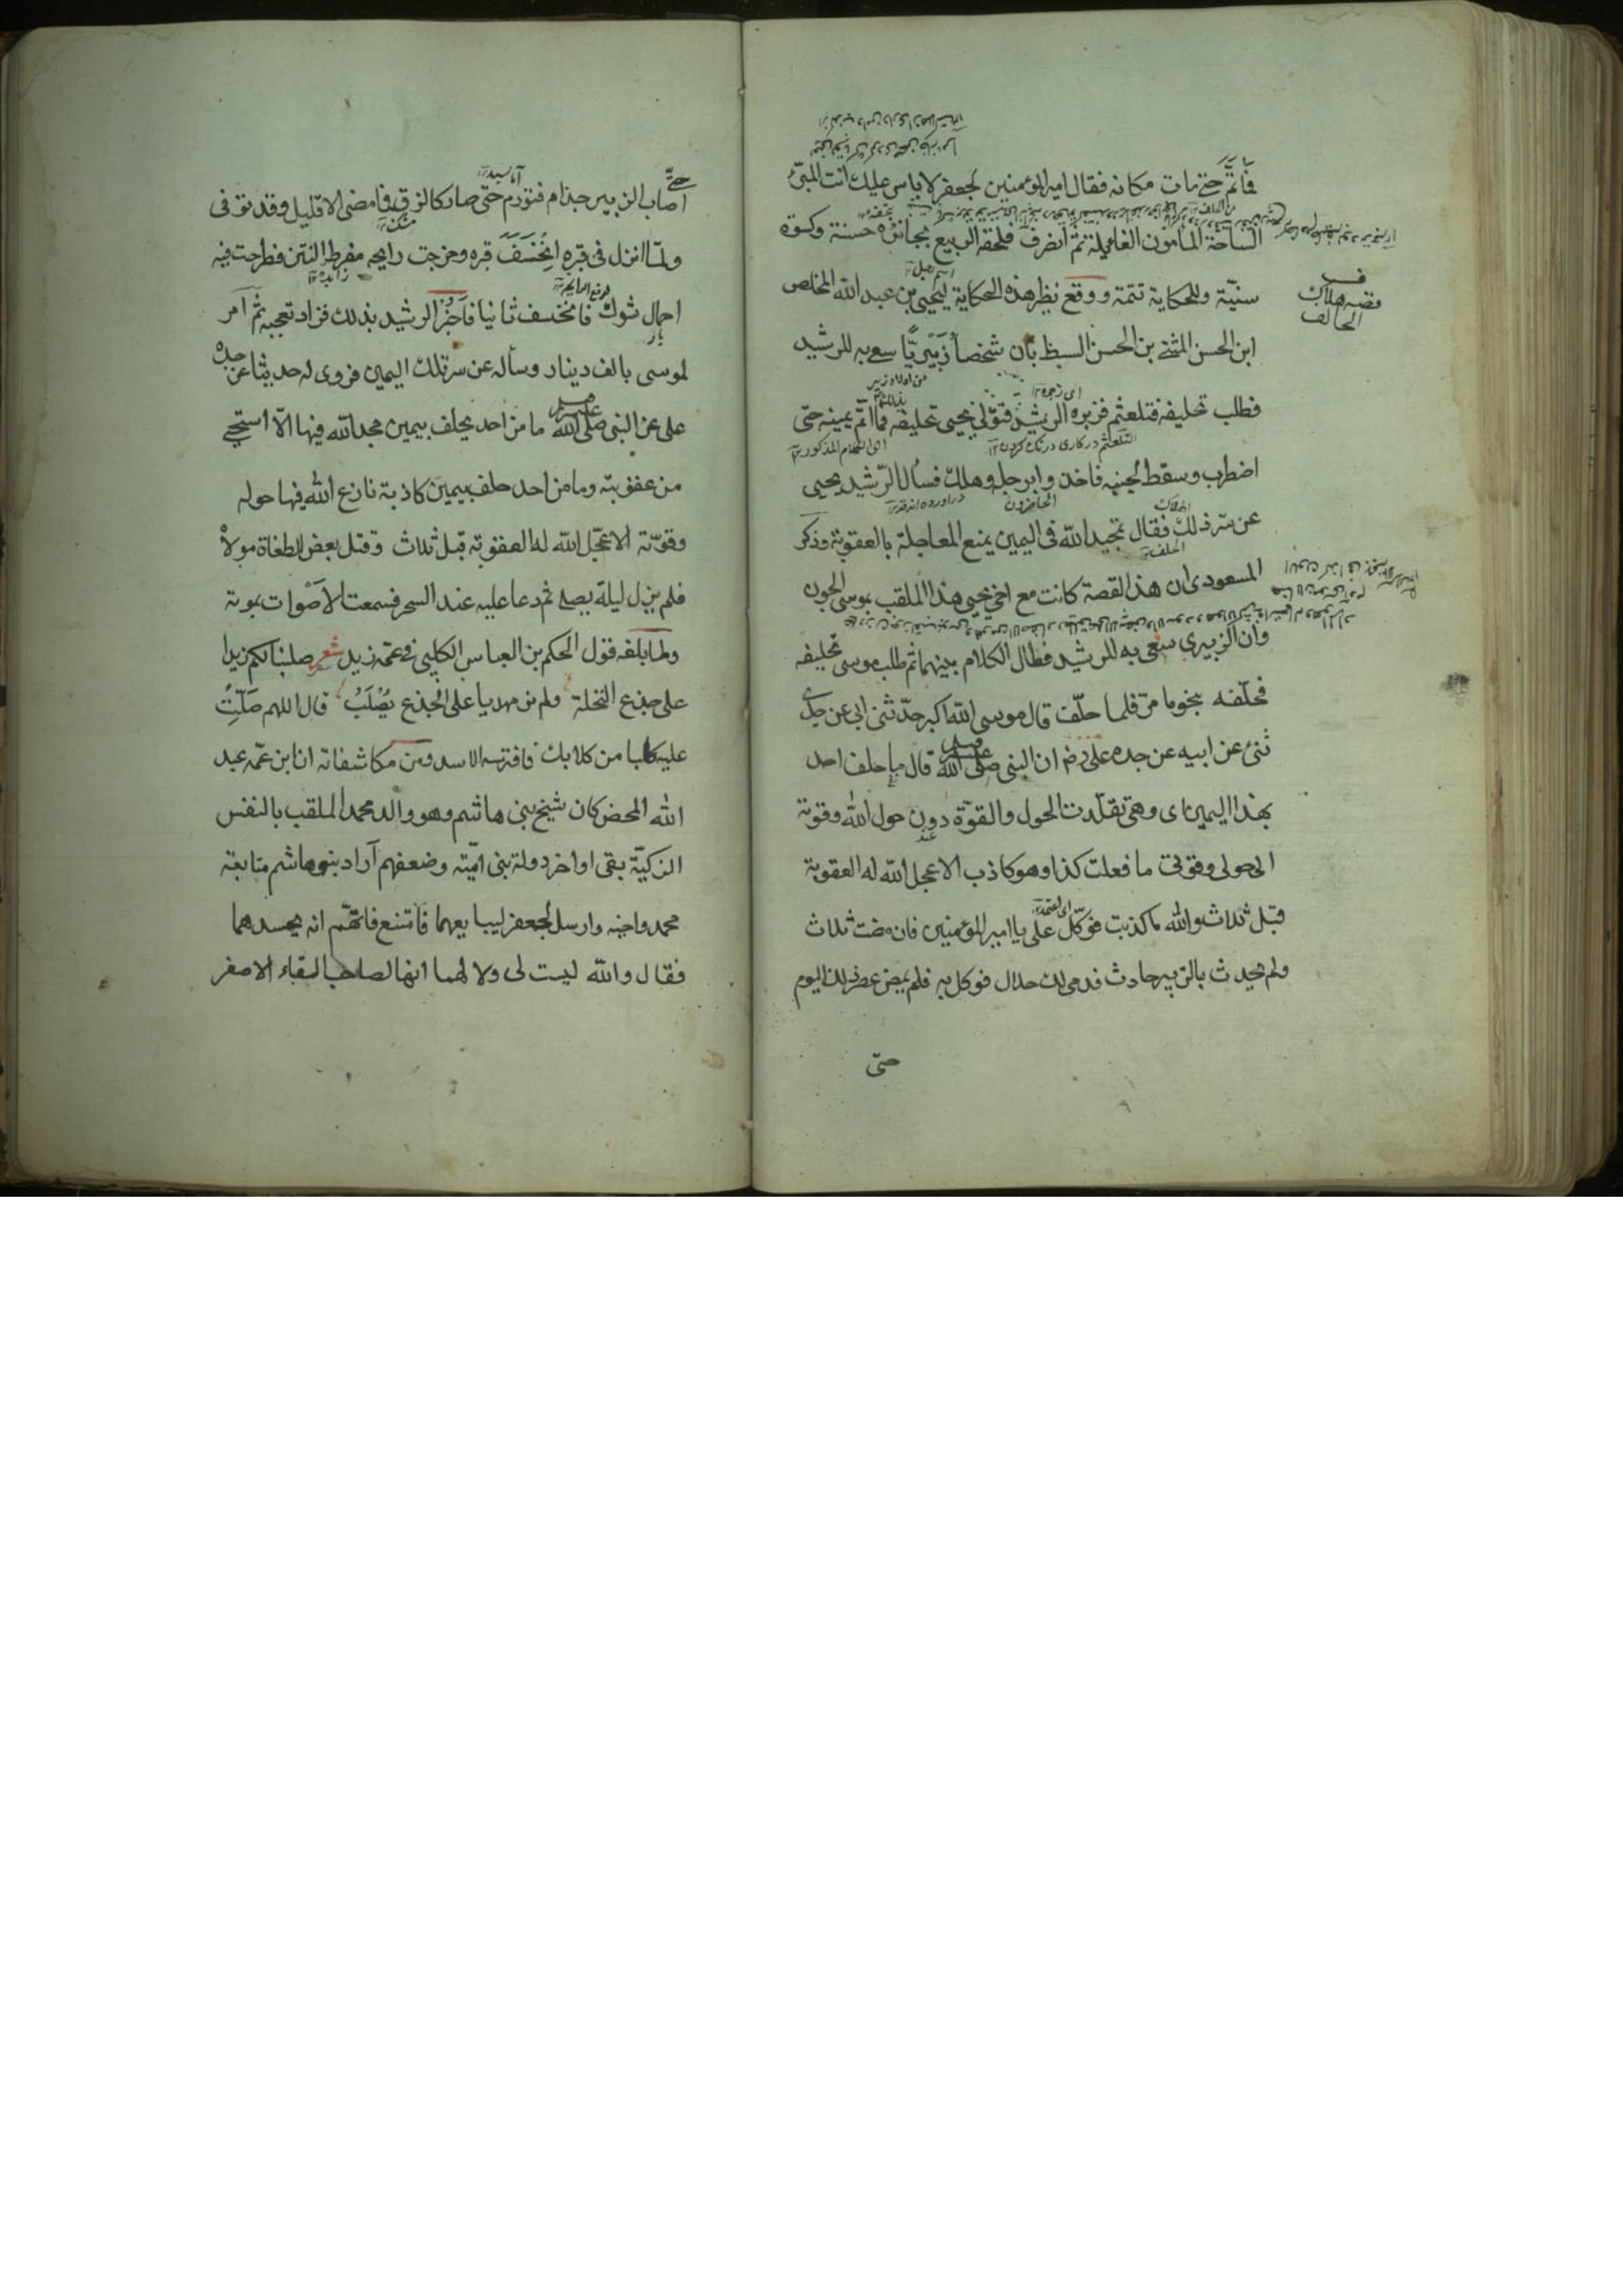 فما تمّ حتى مات مكانه فقال امير المؤمنين لجعفر لا باس عليك انت المبرّئ
الساحة المأمون الغايلة ثم انصرف فلحقه الربيع بجائزة حسنة وكسوة
سنيّة وللحكاية تتمة ووقع نظير هذه الحكاية ليحيى بن عبد الله المخلص
قصه هلاك
الحالف
ابن الحسن المثنى بن الحسن السبط بان شخصا زبيريّا سعى به للرشيد
من اولاد زبير
فطلب تحليفه فتلعثم فزبره الرشيد فتولّى يحيى تحليفه فما اتمّ يمينه حتى
اى زجره ١٢
التلعثم در كارى درنك كردن ١٢
اى الكلام المذكور ١٢
اضطرب وسقط لجنبه فاخذوا برجله وهلك فسأل الرّشيد يحيى
الحاضرون
عن سر ذلك فقال تمجيد الله فى اليمين يمنع المعاجلة بالعقوبة وذكر
الهلاك
الحلف
المسعودى ان هذا القصة كانت مع اخى يحيى هذا الملقب بموسى الجون
وان الزبيرى سعى به للرشيد فطال الكلام بينهما ثم طلب موسى تحليفه
فحلّفه بنحو ما مرّ فلما حلّف قال موسى الله اكبر حدّثنى ابى عن جدى
ثنى عن ابيه عن جده على رض ان النبى صلى الله عليه وسلم قال ما حلف احد
بهذا اليمين اى وهى تقلّدت الحول والقوّة دون حول الله وقوته
الى حولى وقوتى ما فعلت كذا وهو كاذب الا عجل الله له العقوبة
قبل ثلاث والله ما كذبت فوكّل علىّ يا امير المؤمنين فان مضت ثلاث
اى اعتمد
ولم يحدث بالزبير حادث فدمى لك حلال فوكل به فلم يمض عصر ذلك اليوم
حتى
حتى
اصاب الزبير جذام فتورم حتى صار كالزق فما مضى الا قليل وقد توفى
آماسيد
مشك
ولمّا انزل فى قبره انخسف قبره وخرجت رايحه مفرط النتن فطرحت فيه
زايده ١٢
احمال شوك فانخسف ثانيا فاخبر الرشيد بذلك فزاد تعجبه ثم امر
بار
لموسى بالف دينار وسأله عن سر تلك اليمين فروى له حديثا عن جده
على عن النبى صلى الله عليه وسلم ما من احد يحلف بيمين مجد الله فيها الا استحيى
من عقوبته وما من احد حلف بيمين كاذبة نازع الله فيها حوله
وقوّته الا عجّل الله له العقوبة قبل ثلاث وقتل بعض الطغاة مولاه
فلم يزل ليلة يصلى ثم دعا عليه عند السحر فسمعت الاصوات بموته
ولما بلغه قول الحكم بن العباس الكلبى فى عمّه زيد شعر صلبنا لكم زيدا
على جذع النخلة ولم نر مهديا على الجذع يصلب قال اللهم سلّط
عليه كلبا من كلابك فافترسه الاسد ومن مكاشفاته ان ابن عمه عبد
الله المحض كان شيخ بنى هاشم وهو والد محمد الملقب بالنفس
الزكيّة بقى اواخر دولة بنى اميّة وضعفهم اراد بنو هاشم متابعة
محمد واخيه وارسل لجعفر ليبايعهما فامتنع فاتهّم انه يحسدهما
فقال والله ليست لى ولا لهما انها لصاحب القباء الاصفر